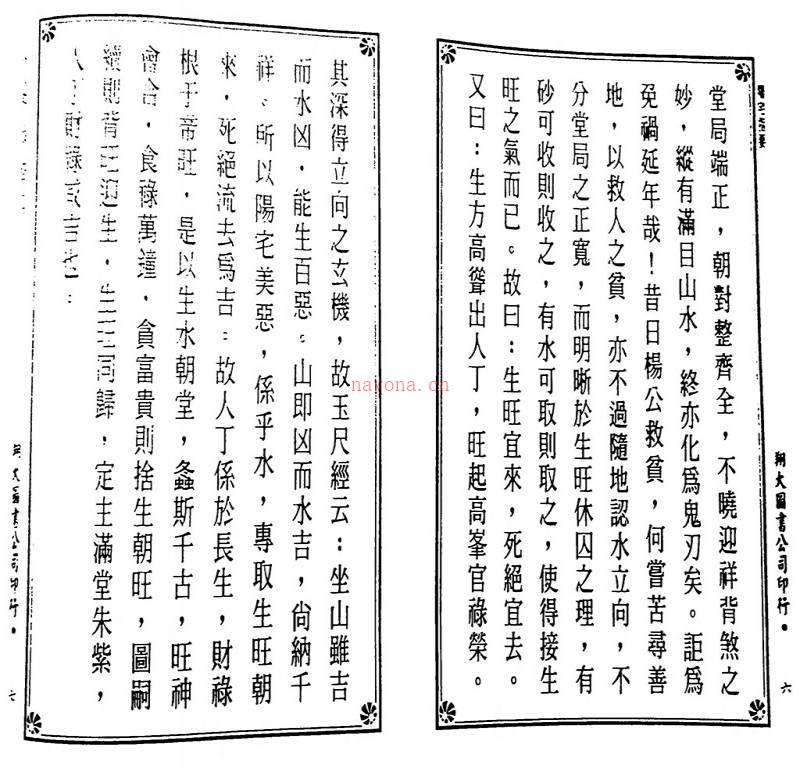 堂局端正，朝對整齊全，不曉迎祥背煞之
妙，縱有滿目山水，終亦化為鬼刃矣。詎為
免禍延年哉！昔日楊公救貧，何嘗苦尋善
地，以救人之貧，亦不過隨地認水立向，不
分堂局之正寬，而明晰於生旺休囚之理，有
砂可收則收之，有水可取則取之，使得接生
旺之氣而已。故曰：生旺宜來，死絕宜去。
又曰：生方高聳出人丁，旺起高峯官祿榮。
翔大圖書公司印行。
六
其深得立向之玄機，故玉尺經云：坐山雖吉
而水凶，能生百惡。山即凶而水吉，尙納千
祥。所以陽宅美惡，係乎水，專取生旺朝
來，死絕流去爲吉。故人丁係於長生，財祿
根于帝旺，是以生水朝堂，螽斯千古，旺神
會合，食祿萬鐘，貪富貴則捨生朝旺，圖嗣
續則背旺迎生，生旺同歸，定主滿堂朱紫，
財祿
翔大圖書公司印行。
六
nayona.cn